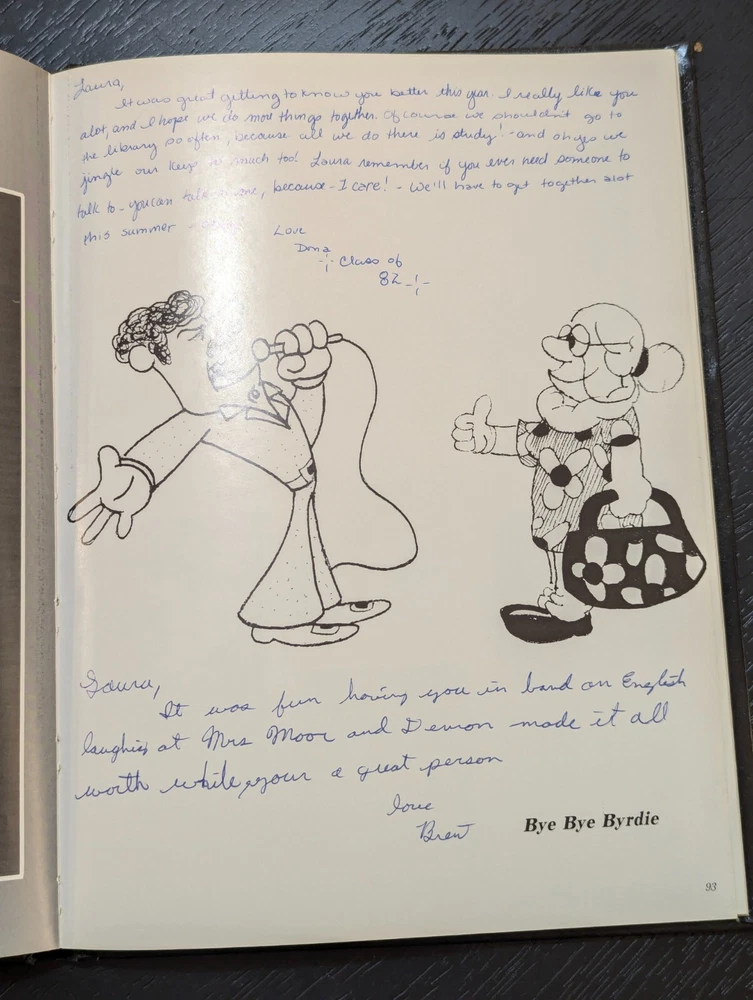 Laura,
It was great getting to know you better this year. I really like you
alot, and I hope we do more things together. Of course we shouldn't go to
the library so often, because all we do there is study! - and oh yes we
jingle our keys to much too! Laura remember if you ever need someone to
talk to - you can talk to me, because - I care! - We'll have to get together alot
this summer -
Love
Dona
Class of
82
Laura,
It was fun having you in band an English
laughing at Mrs Moor and Demon made it all
worth while, your a great person
love
Brent
Bye Bye Byrdie
93